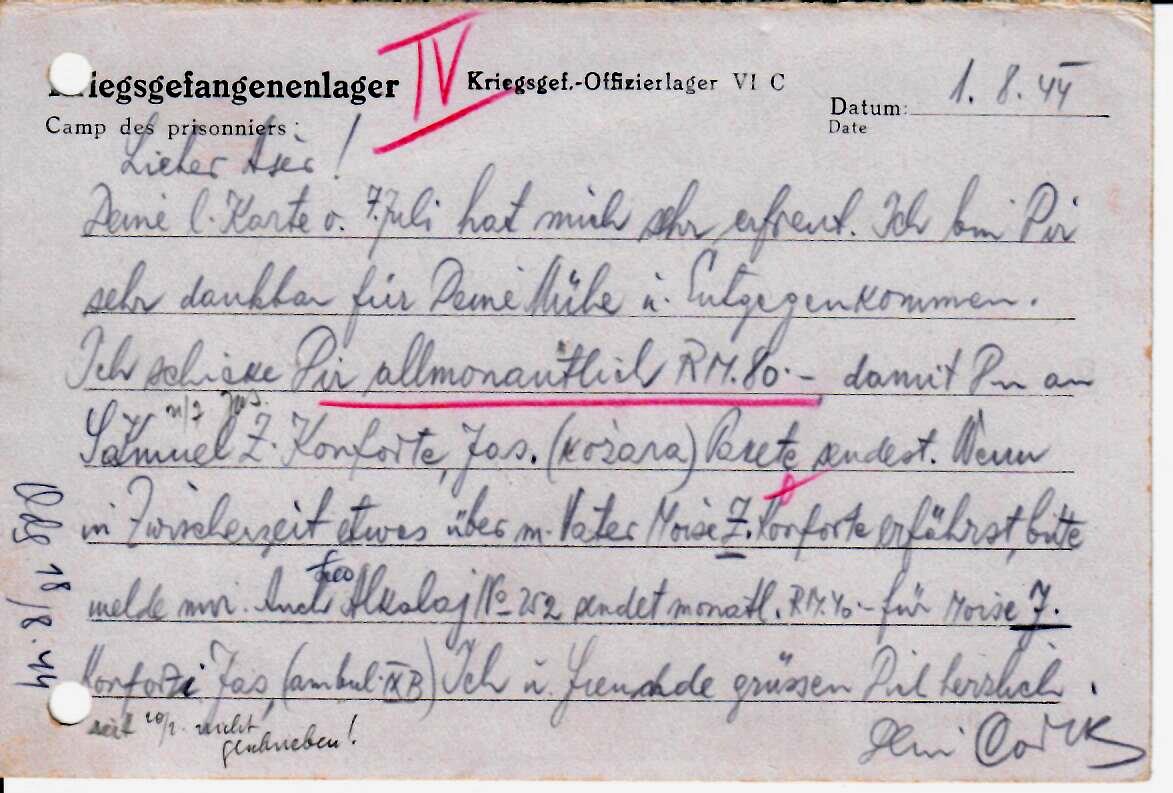 IV
iegsgefangenenlager Kriegsgef.-Offizierlager VI C
Camp des prisonniers:
Datum: 1. 8. 44
Date
Lieber !
Deine l. Karte v. 7. Juli hat mich sehr erfreut. Ich bin Dir
sehr dankbar für Deine Mühe u. Entgegenkommen.
Ich schicke Dir allmonatlich RM. 80.- damit Du an
Samuel Z. Konforte, Jas. (kožara) Pakete sendest. Wenn
in Zwischenzeit etwas über m. Vater Moise Z. Konforte erfährst, bitte
melde mir. Auch Alkalaj No 252 sendet monatl. RM. 40.- für Moise J.
Konforti Jas, (ambul. IX B) Ich u. Freunde grüssen Dich herzlich.
seit 20/2. nicht
geschrieben!
Dein
18/8. 44